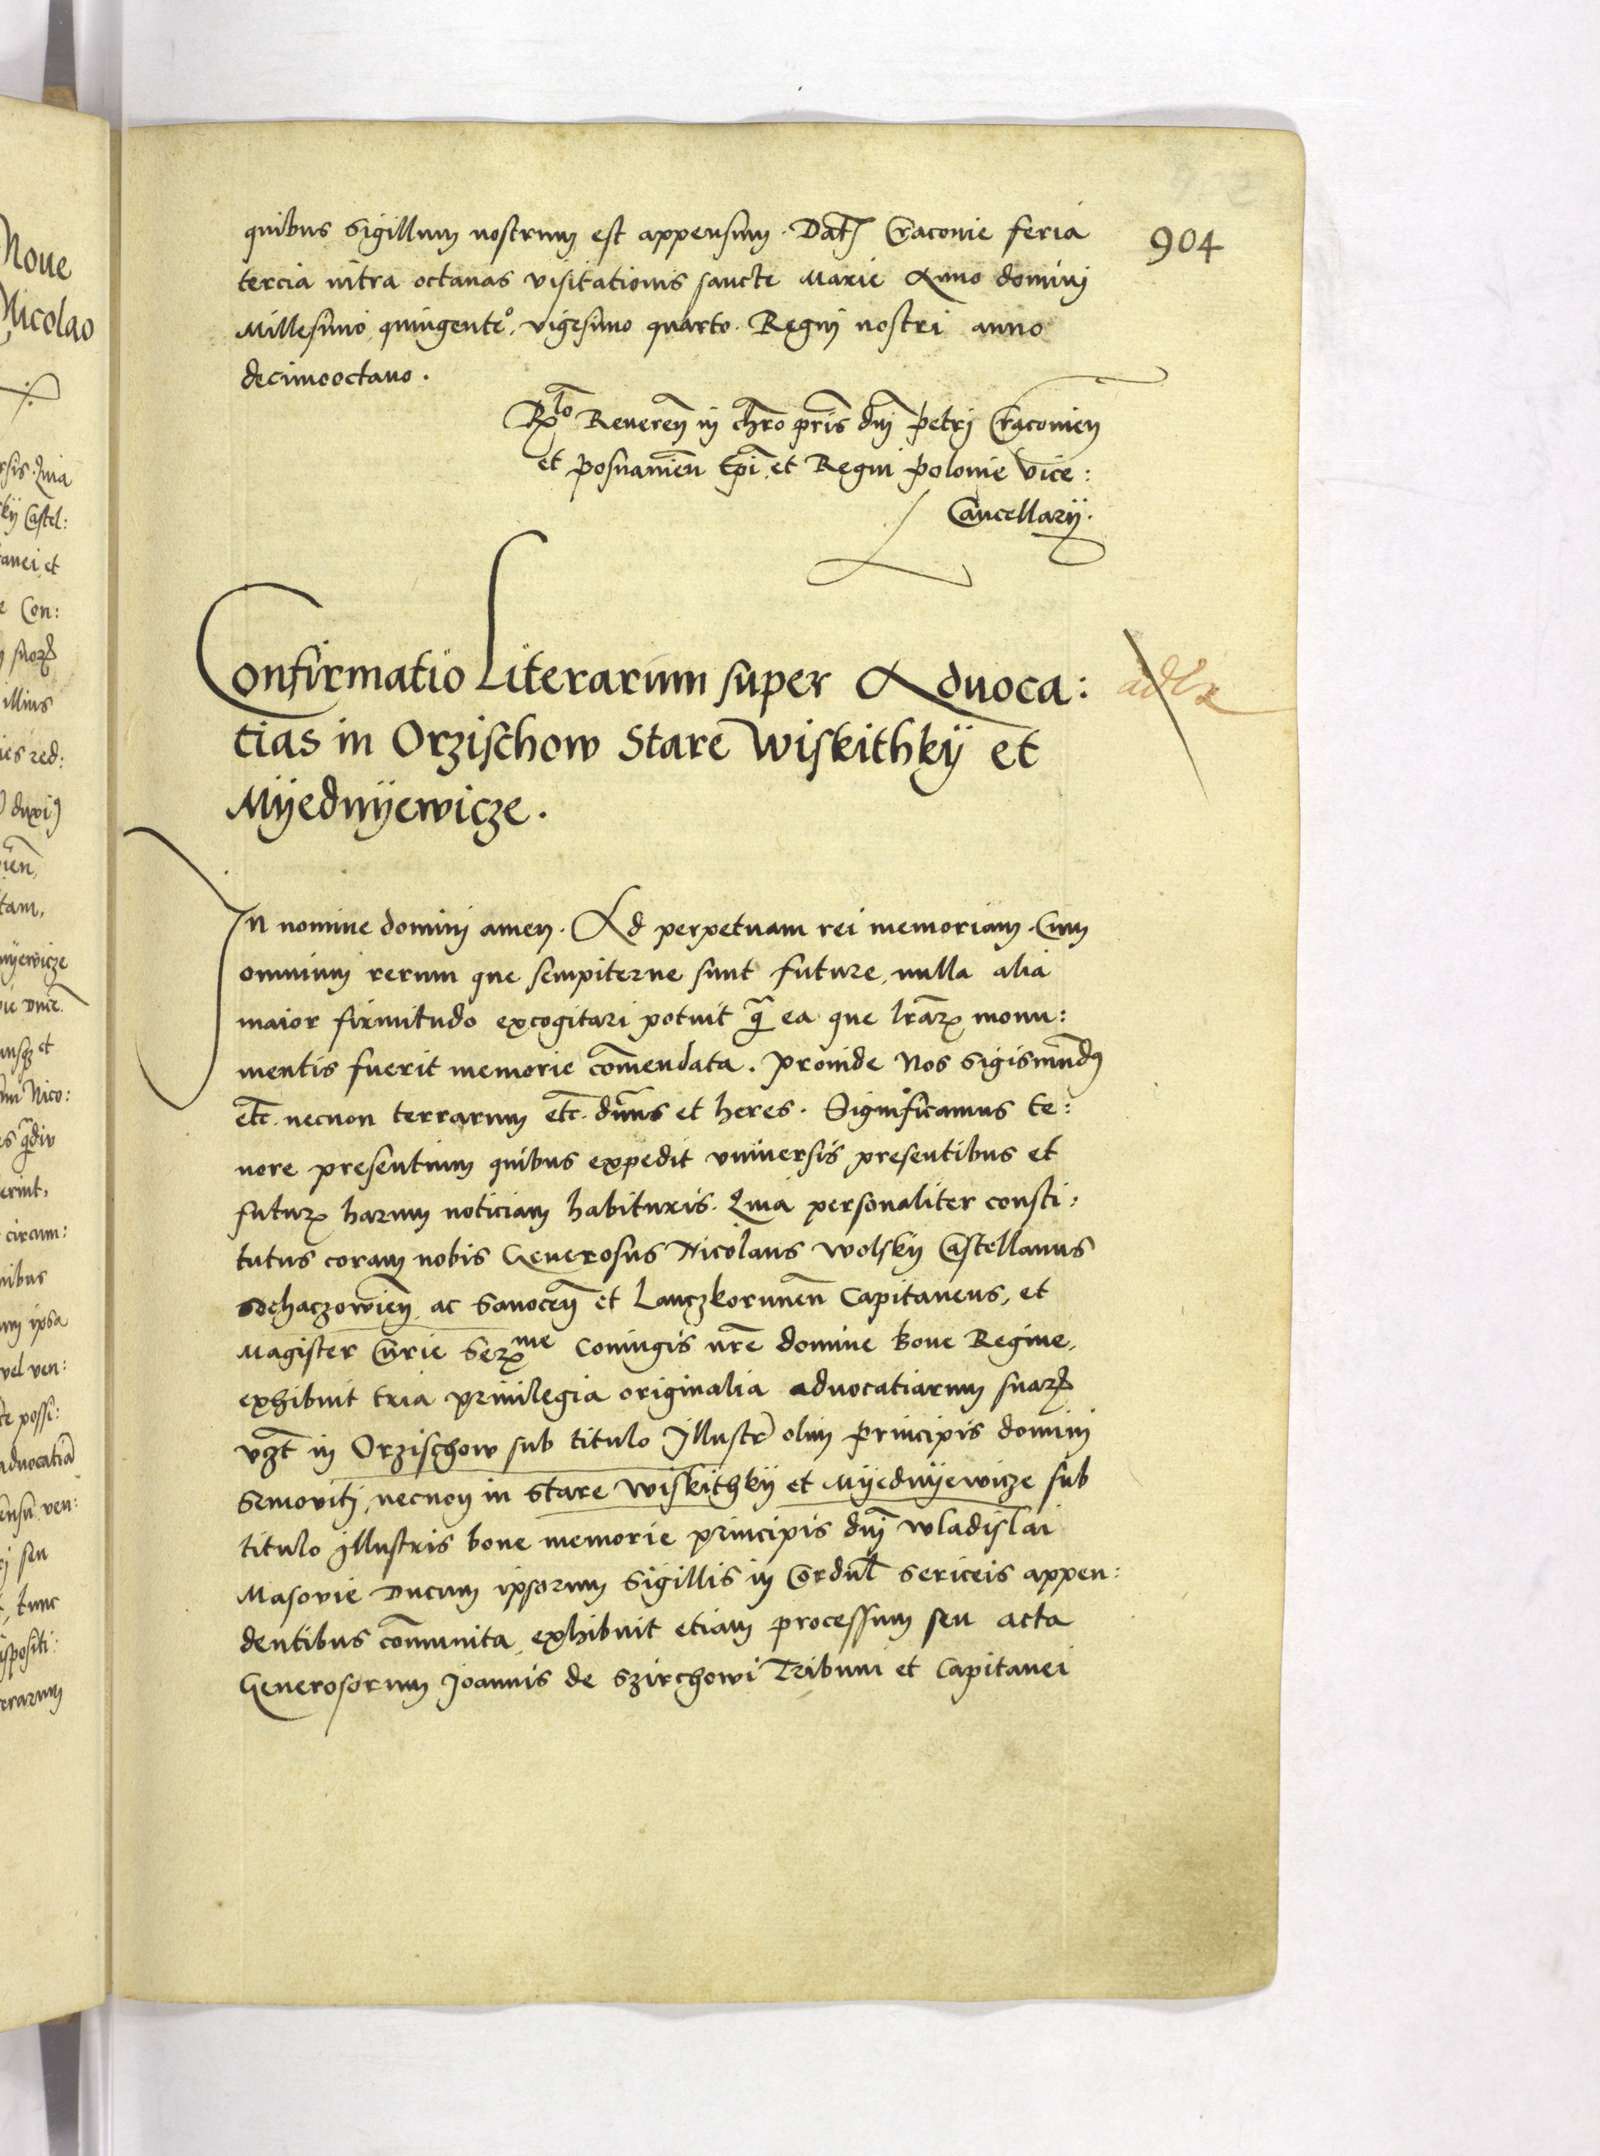 904
quibus Sigillum nostrum est appensum. Dat̃ Cracovie feria
tercia intra octavas visitationis sancte Marie Anno domini
Millesimo quingente°. vigesimo quarto. Regni nostri anno
decimooctavo.
Rlo Reveren̄ in chr̃o pris dnj Petrj Cracovien̄
et Posnanien̄ Epi et Regni Polonie Vice:
Cancellarij.
Confirmatio Literarum super Advoca:
tias in Orzischow Stare Wiskithkÿ et
Mÿednÿewicze.
In nomine dominj amen. Ad perpetuam rei memoriam. Cum
omnium rerum que sempiterne sunt future, nulla alia
maior firmitudo excogitari potuit q̃ ea que lrarꝝ monu:
mentis fuerit memorie com̄endata. Proinde Nos Sigismundꝰ
etc. necnon terrarum etc. dnus et heres. Significamus te:
nore presentium quibus expedit universis presentibus et
futurꝝ harum noticiam habituris. Quia personaliter consti:
tutus coram nobis Generosus Nicolaus Wolskÿ Castellanus
Sochaczowien̄ ac Sanocen̄ et Lanczkorunen̄ Capitaneus, et
Magister Curie Serme Coniugis nrẽ domine Bone Regine,
exhibuit tria privilegia originalia advocatiarum suarꝝ
vȝt in Orzischow sub titulo Illustr̃ olim principis domini
Semovitj necnon in Stare Wiskithkÿ et Mÿednÿewicze sub
titulo illustris bone memorie principis dnj Wladislai
Masovie Ducum ipsorum Sigillis in Cordul̃ sericeis appen:
dentibus com̄unita, exhibuit etiam processum seu acta
Generosorum Joannis de Szirchowi Tribuni et Capitanei